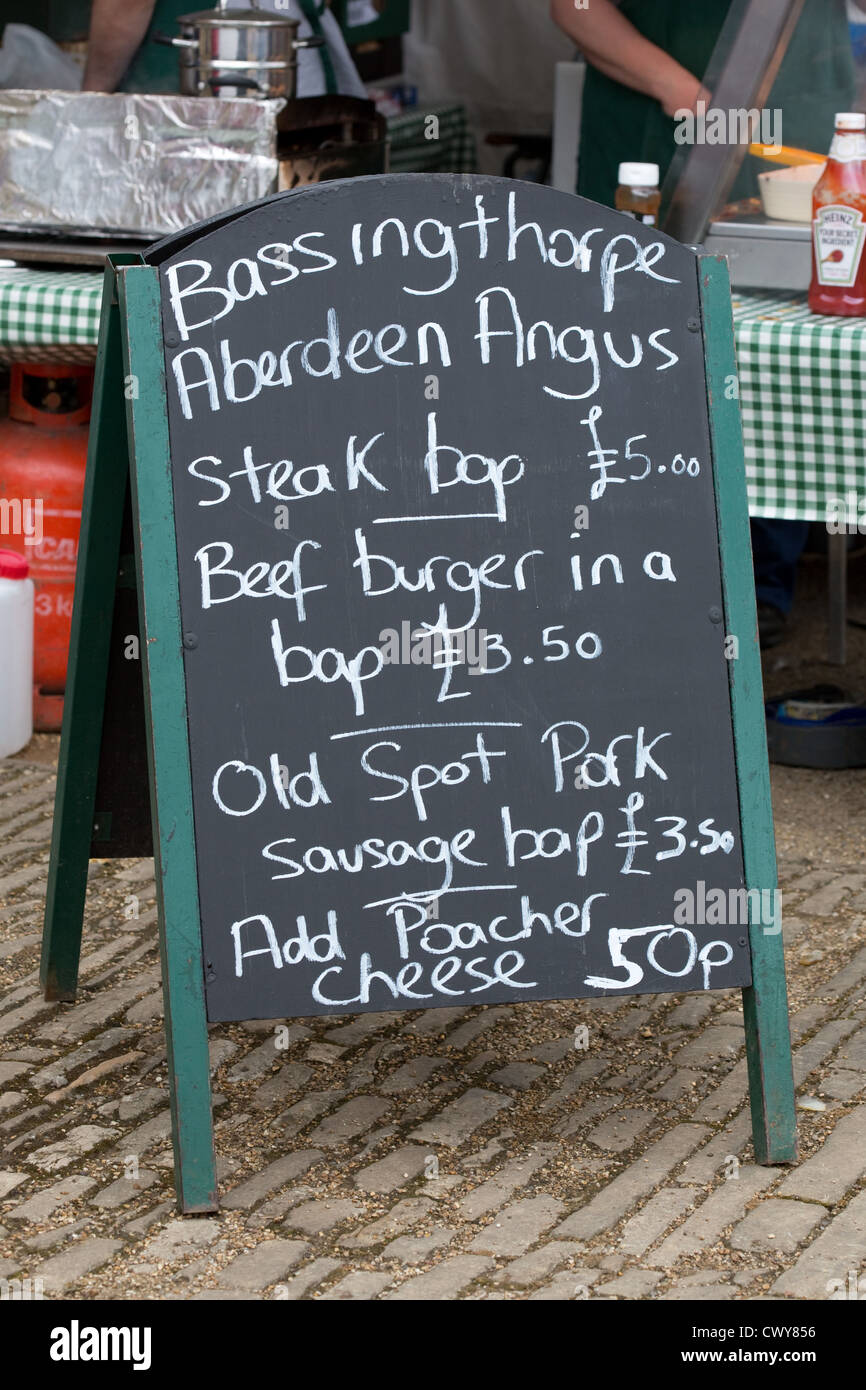 Bassingthorpe
Aberdeen Angus
Steak bap £5.00
Beef burger in a
bap £3.50
Old Spot Pork
sausage bap £3.50
Add Poacher
cheese 50p
HEINZ
alamy
Image ID: CWY856
www.alamy.com